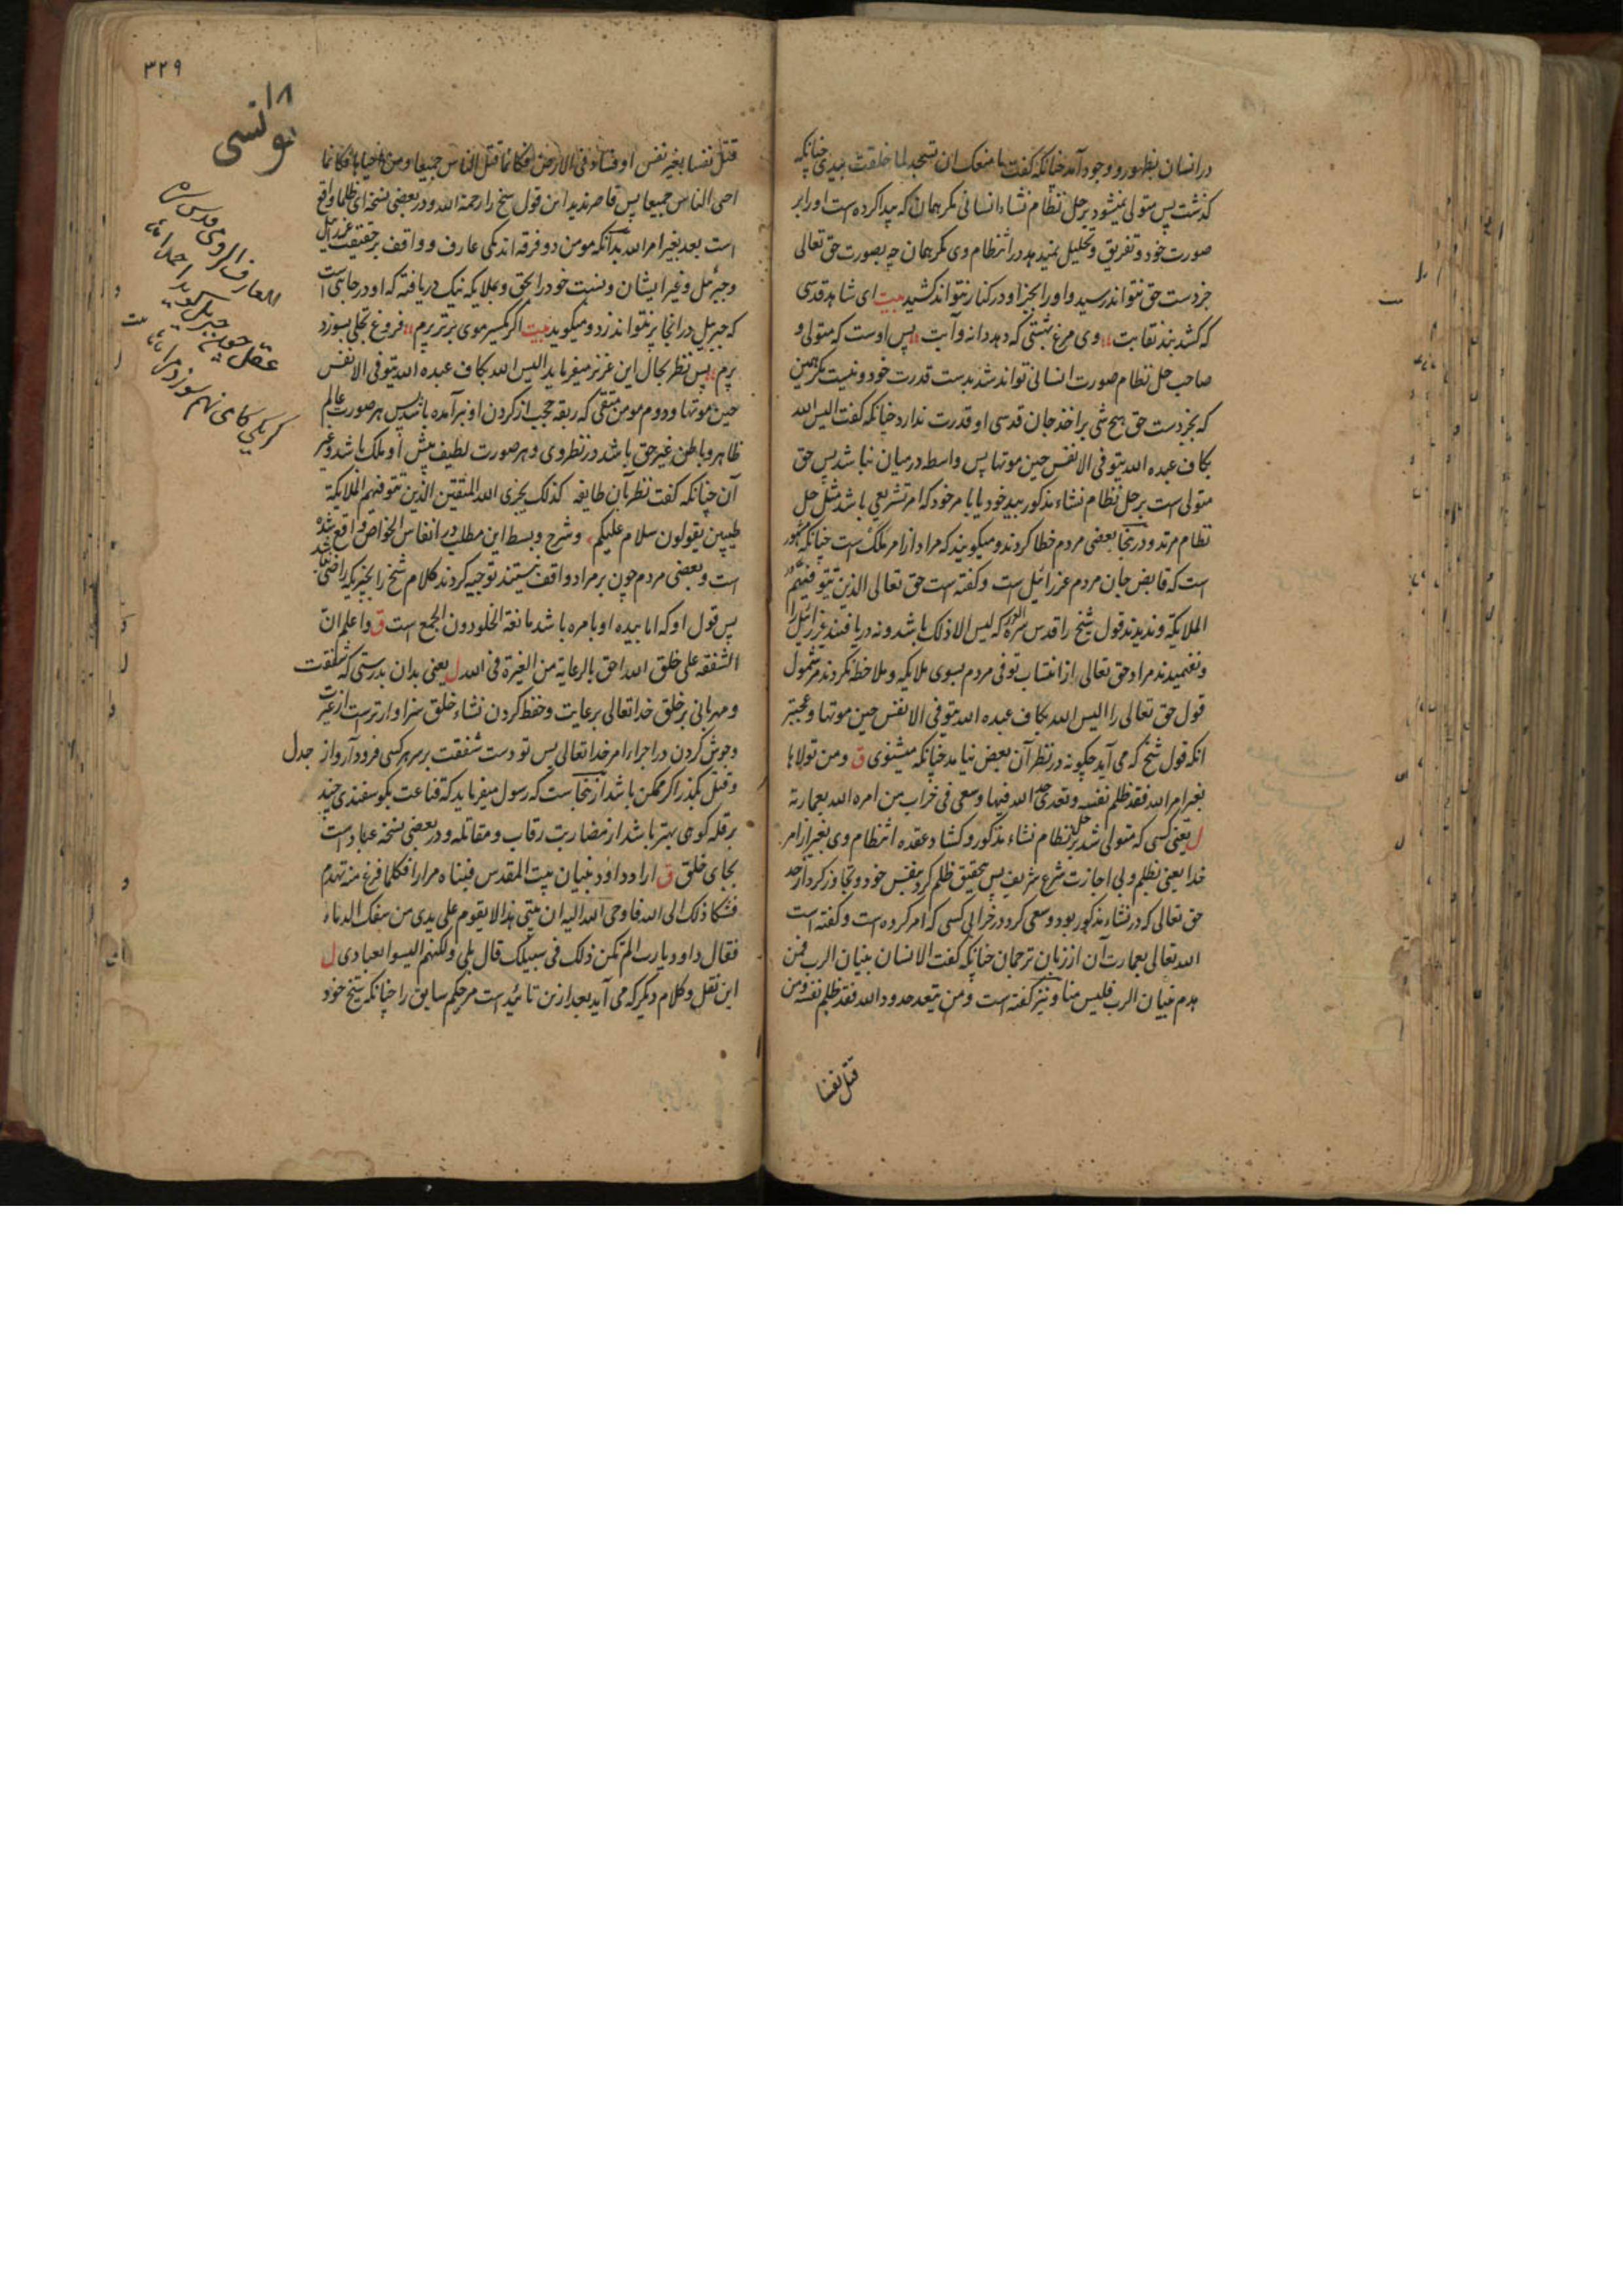 در انسان بظهور و وجود آمد چنانکه گفت ما منعک ان تسجد لما خلقت بیدی چنانکه
گذشت پس متولی نمیشود بر حل نظام نشاء انسانی مگر همان که پیدا کرده است او را بر
صورت خود و تفریق و تحلیل نمیدهد در انتظام وی مگر همان چه بصورت حق تعالی
جز دست حق نتواند رسید و او را بجز او در کنار نتواند کشید بیت ای شاهد قدسی
که کشد بند نقابت وی مرغ بهشتی که دهد دانه و آبت پس اوست که متولی و
صاحب حل نظام صورت انسانی تواند شد بدست قدرت خود و نیست مگر همین
که بجز دست حق هیچ شی بر اخذ جان قدسی او قدرت ندارد چنانکه گفت الیس الله
بکاف عبده الله یتوفی الانفس حین موتها پس واسطه درمیان نباشد پس حق
متولی است بر حل نظام نشاء مذکور بید خود یا بامر خود که امر تشریعی باشد مثل حل
نظام مرتد و درینجا بعضی مردم خطا کردند و میگویند که مراد از امر ملک است چنانکه مشهور
است که قابض جان مردم عزرائیل است و گفته است حق تعالی الذین تتوفیهم
الملایکة و ندیدند قول شیخ را قدس سره که لیس الا ذلک باشد و نه دریافتند عزرائیل را
و نفهمیدند مراد حق تعالی از انتساب توفی مردم بسوی ملایکه و ملاحظه نکردند مر شمول
قول حق تعالی را الیس الله بکاف عبده الله یتوفی الانفس حین موتها و عجبتر
آنکه قول شیخ که می آید چگونه در نظر آن بعض نیامد چنانکه میشنوی ق ومن تولاها
بغیر امر الله فقد ظلم نفسه وتعدی حد الله فیها وسعی فی خراب من امره الله بعمارته
ل یعنی کسی که متولی شد بر حل نظام نشاء مذکور و کشاد عقده انتظام وی بغیر از امر
خدا یعنی بظلم و بی اجازت شرع شریف پس بتحقیق ظلم کرد بنفس خود و تجاوز کرد از حد
حق تعالی که در نشاء مذکور بود و سعی کرد در خرابی کسی که امر کرده است و گفته است
الله تعالی بعمارت آن از زبان ترجمان چنانکه گفت الانسان بنیان الرب فمن
هدم بنیان الرب فلیس منا و نیز گفته است ومن یتعد حدود الله فقد ظلم نفسه ومن
قتل نفسا
۳۲۹
۱۸
یونسی
العارف الرومی قدس سره
عقل چون جبریل گوید احمدا
گر یکی گامی نهم سوزد مرا
قتل نفسا بغیر نفس او فساد فی الارض فکانما قتل الناس جمیعا ومن احیاها فکانما
احی الناس جمیعا پس قاصر ندید این قول شیخ را رحمة الله و در بعضی نسخه ای ظلما واقع
است بعد بغیر امر الله بدانکه مومن دو فرقه اند یکی عارف و واقف بر حقیقت عزرائیل
و جبرئیل و غیر ایشان و نسبت خود را بحق و بملایکه نیک دریافته که او در جایی است
که جبریل در انجا پر نتواند زد و میگوید بیت اگر یکسر موی برتر پرم فروغ تجلی بسوزد
پرم پس نظر بحال این عزیز میفرماید الیس الله بکاف عبده الله یتوفی الانفس
حین موتها و دوم مومن متقی که ربقه حجب از کردن او نبرآمده باشد پس هر صورت عالم
ظاهر و باطن غیر حق باشد در نظر وی و هر صورت لطیف پیش او ملک باشد و غیر
آن چنانکه گفت نظر بآن طایفه کذلک یجزی الله المتقین الذین تتوفیهم الملایکة
طیبین یقولون سلام علیکم و شرح و بسط این مطلب در انفاس الخواص واقع شده
است و بعضی مردم چون بر مراد واقف نیستند توجیه کردند کلام شیخ را بچیزیکه راضی نباشد
پس قول او که اما بیده او بامره باشد مانعة الخلو دون الجمع است ق واعلم ان
الشفقة علی خلق الله احق بالرعایة من الغیرة فی الله ل یعنی بدان بدرستی که شفقت
و مهربانی بر خلق خدا تعالی برعایت و حفظ کردن نشاء خلق سزاوارترست از غیرت
و جوش کردن در اجراء امر خدا تعالی پس تو دست شفقت بر سر هر کسی فرود آر و از جدل
و قتل بگذر اگر ممکن باشد ازینجاست که رسول میفرماید که قناعت بگوسفندی چند
بر قله کوهی بهتر باشد از مضاربت رقاب و مقاتله و در بعضی نسخه عباد است
بجای خلق ق اراد داود بنیان بیت المقدس فبناه مرارا فکلما فرغ منه تهدم
فشکا ذلک الی الله فاوحی الله الیه ان بیتی هذا لا یقوم علی یدی من سفک الدماء
فقال داود یا رب الم تکن ذلک فی سبیلک قال بلی ولکنهم الیسوا بعبادی ل
این نقل و کلام دیگر که می آید بعد ازین تائید است مر حکم سابق را چنانکه شیخ خود